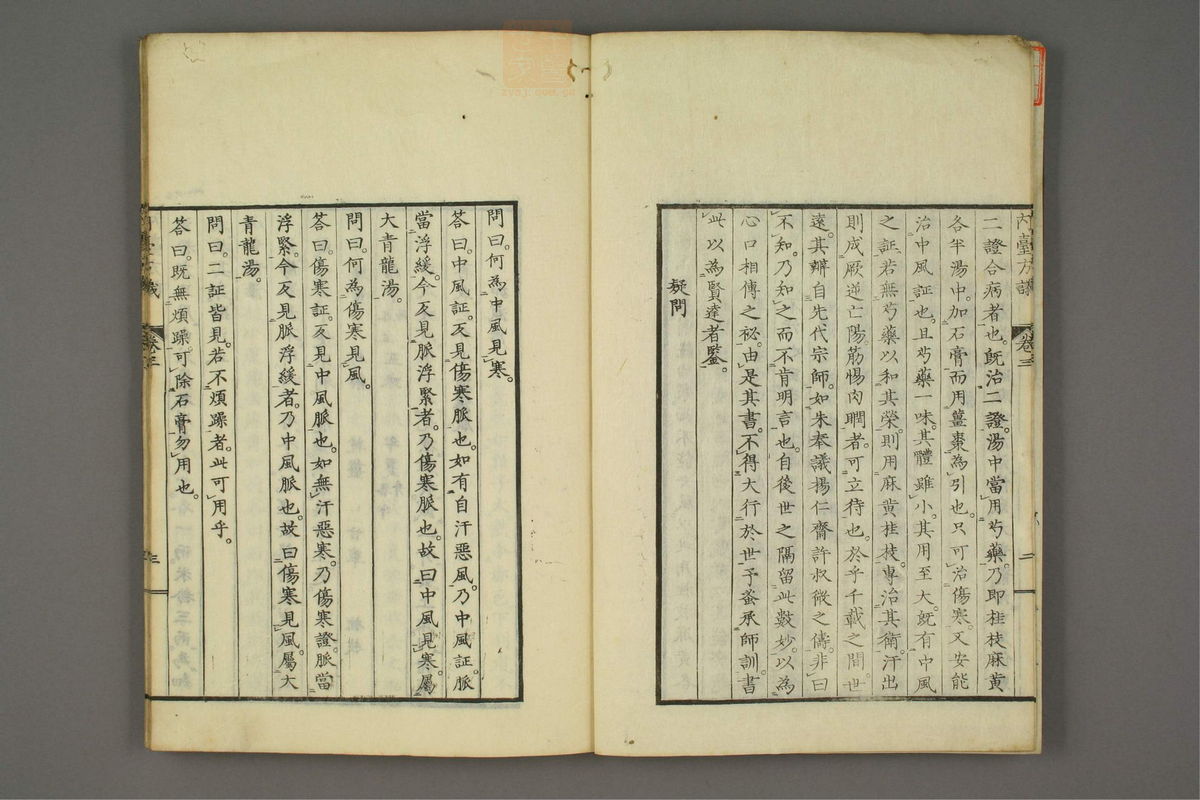 二證合病者也。既治二證。湯中當用芍藥。乃即桂枝麻黄
各半湯中。加石膏而用薑棗為引也。只可治傷寒。又安能
治中風証也。且芍藥一味。其體雖小。其用至大。既有中風
之証。若無芍藥以和其榮。則用麻黄桂枝。專治其衛。汗出
則成厥逆亡陽。筋惕肉瞤者。可立待也。於乎千載之間。世
遠。其辨自先代宗師。如朱奉議揚仁齋許叔微之儔。非曰
不知。乃知之而不肯明言也。自後世之隔留此數妙。以為
心口相傳之秘。由是其書。不得大行於世。予蚤承師訓。書
此以為賢達者鑒。
疑問
内臺方議
卷三
二
問曰。何為中風見寒。
答曰。中風証。反見傷寒脈也。如有自汗惡風。乃中風証。脈
當浮緩。今反見脈浮緊者。乃傷寒脈也。故曰中風見寒。屬
大青龍湯。
問曰。何為傷寒見風。
答曰。傷寒証。反見中風脈也。如無汗惡寒。乃傷寒證。脈當
浮緊。今反見脈浮緩者。乃中風脈也。故曰傷寒見風。屬大
青龍湯。
問曰。二証皆見。若不煩躁者。此可用乎。
答曰。既無煩躁。可除石膏勿用也。
卷三
三